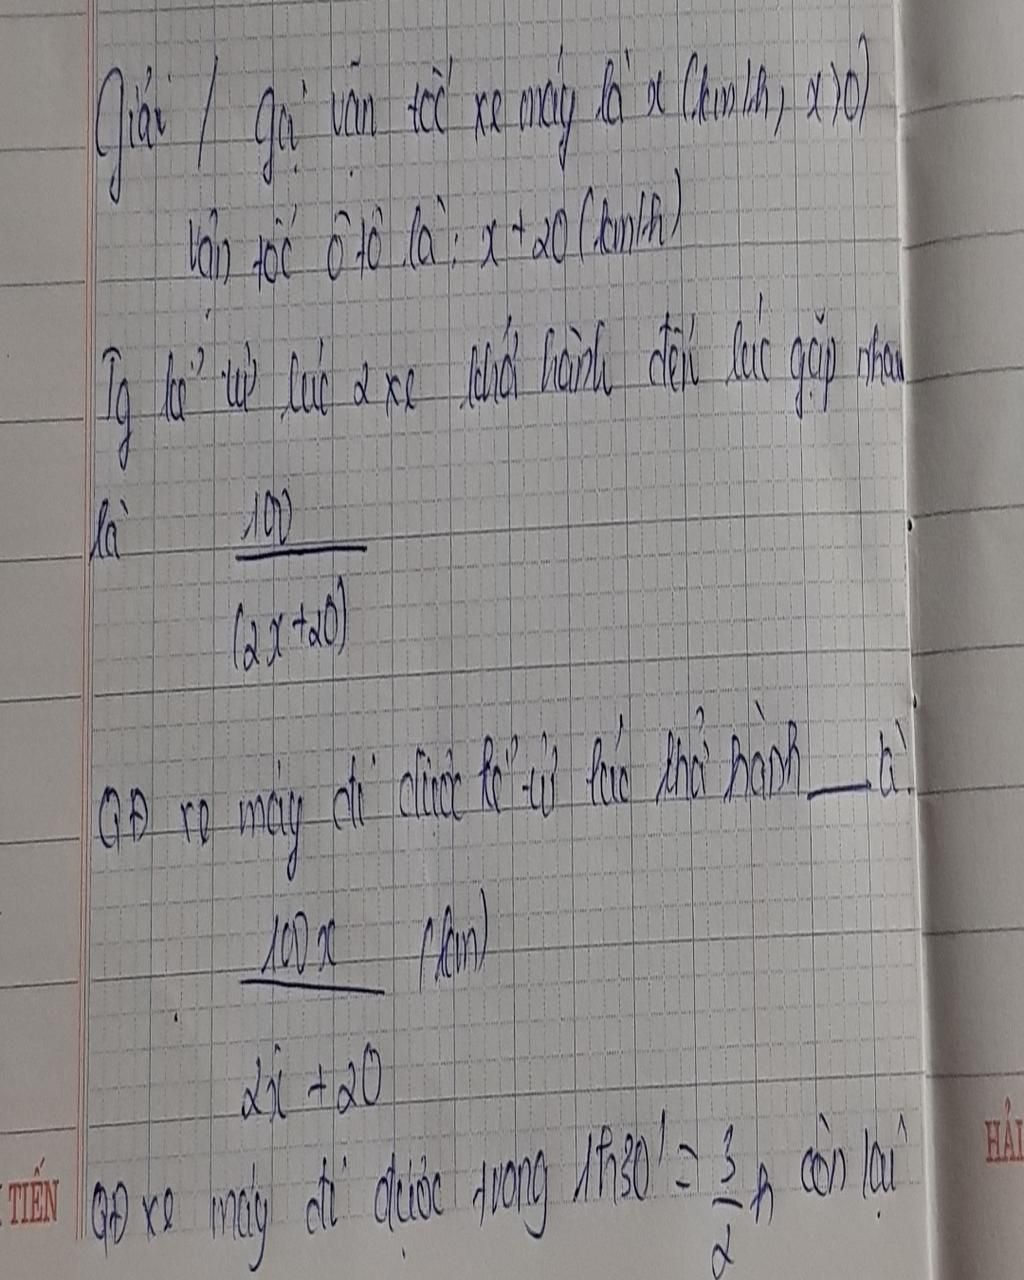 Giải / Gọi vận tốc xe máy là x (km/h, x>0)
Vận tốc ô tô là: x + 20 (km/h)
Tg kể từ lúc 2 xe khởi hành đến lúc gặp nhau
là 100
(2x+20)
QĐ xe máy đi được kể từ lúc khởi hành — là
100x (km)
2x + 20
QĐ xe máy đi được trong 1h30' = 3/2 h còn lại
TIẾN
HẢI